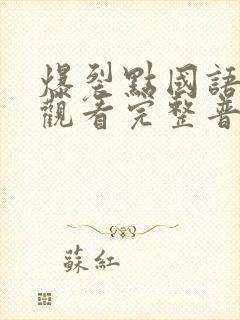 爆裂點國語
觀看完整普
蘇紅